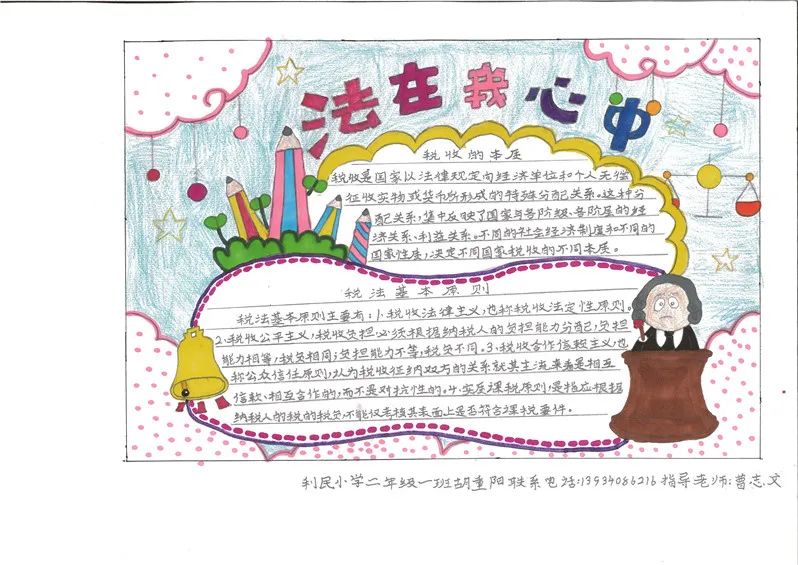 法在我心中
税收的本质
税收是国家以法律规定向经济单位和个人无偿
征收实物或货币所形成的特殊分配关系。这种分
配关系,集中反映了国家与各阶级、各阶层的经
济关系、利益关系。不同的社会经济制度和不同的
国家性质,决定不同国家税收的不同本质。
税法基本原则
税法基本原则主要有:1.税收法律主义,也称税收法定性原则。
2.税收公平主义,税收负担必须根据纳税人的负担能力分配,负担
能力相等,税负相同;负担能力不等,税负不同。3.税收合作信赖主义,也
称公众信任原则,认为税收征纳双方的关系就其主流来看是相互
信赖、相互合作的,而不是对抗性的。4.实质课税原则,是指应根据
纳税人的税的税负,不能仅考核其表面上是否符合课税要件。
利民小学二年级一班胡重阳联系电话:13934086216指导老师:曹志文